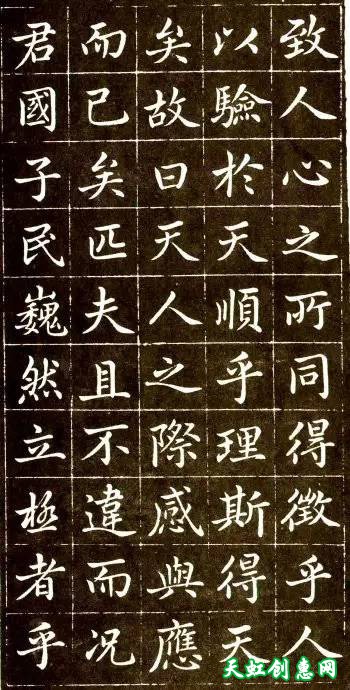 致人心之所同得徵乎人
以驗於天順乎理斯得天
矣故曰天人之際感與應
而已矣匹夫且不違而况
君國子民巍然立極者乎
天虹创惠网